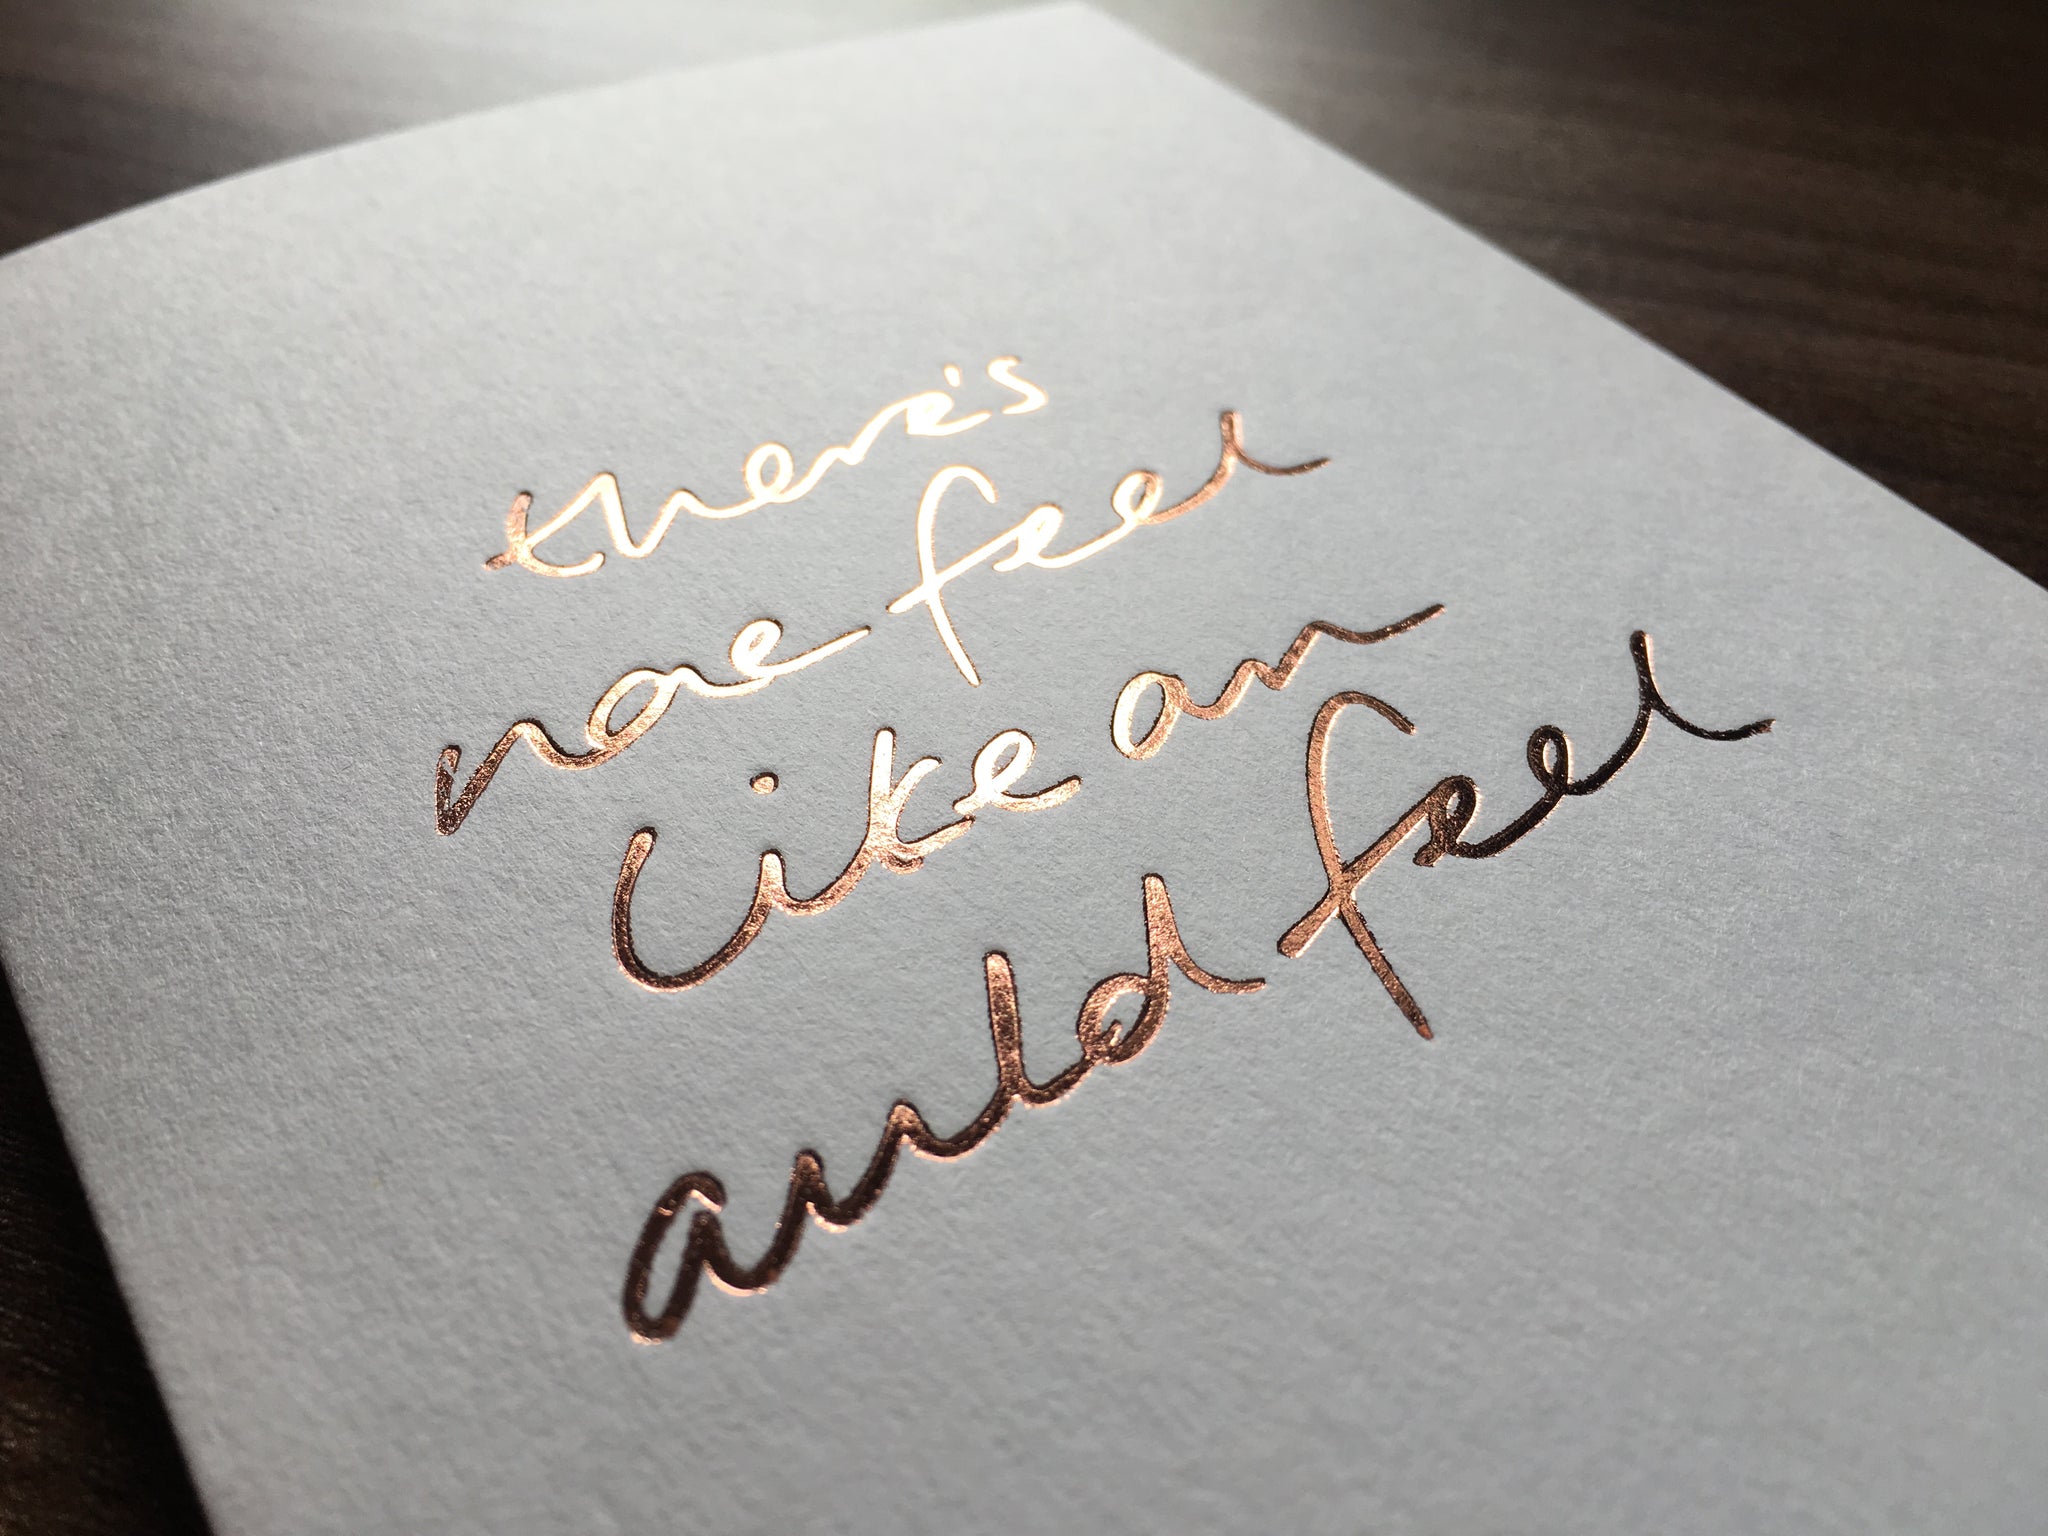 there's
nae feel
like an
auld feel